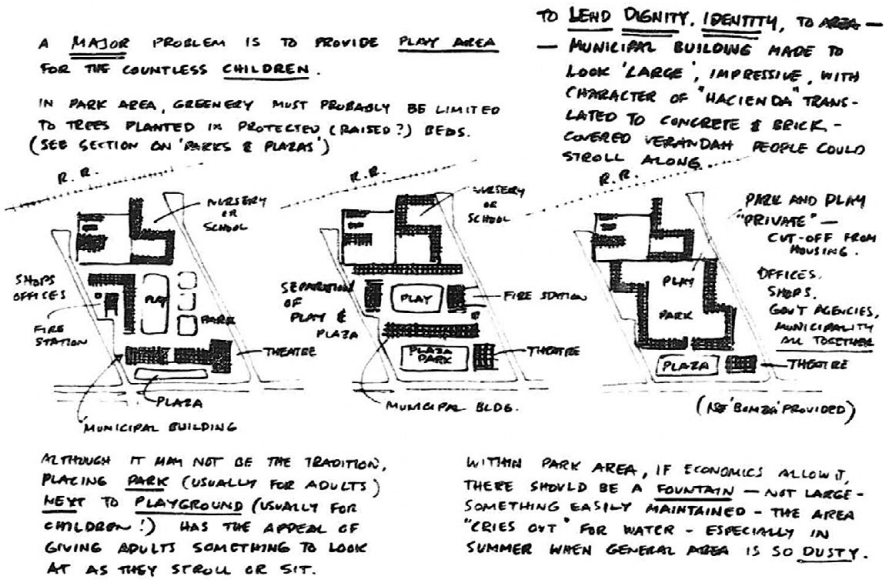 A MAJOR PROBLEM IS TO PROVIDE PLAY AREA
FOR THE COUNTLESS CHILDREN.
IN PARK AREA, GREENERY MUST PROBABLY BE LIMITED
TO TREES PLANTED IN PROTECTED (RAISED?) BEDS.
(SEE SECTION ON 'PARKS & PLAZAS')
TO LEND DIGNITY, IDENTITY, TO AREA —
— MUNICIPAL BUILDING MADE TO
LOOK 'LARGE', IMPRESSIVE, WITH
CHARACTER OF "HACIENDA" TRANS-
LATED TO CONCRETE & BRICK -
COVERED VERANDAH PEOPLE COULD
STROLL ALONG.
R.R.
NURSERY
OR
SCHOOL
SHOPS
OFFICES
PLAY
PARK
FIRE
STATION
THEATRE
PLAZA
MUNICIPAL BUILDING
R.R.
NURSERY
OR
SCHOOL
SEPARATION
OF
PLAY &
PLAZA
PLAY
FIRE STATION
PLAZA
PARK
THEATRE
MUNICIPAL BLDG.
R.R.
PARK AND PLAY
"PRIVATE" —
CUT-OFF FROM
HOUSING.
PLAY
PARK
OFFICES.
SHOPS.
GOV'T AGENCIES,
MUNICIPALITY
ALL TOGETHER
PLAZA
THEATRE
(NB 'BOMBA' PROVIDED)
ALTHOUGH IT MAY NOT BE THE TRADITION,
PLACING PARK (USUALLY FOR ADULTS)
NEXT TO PLAYGROUND (USUALLY FOR
CHILDREN!) HAS THE APPEAL OF
GIVING ADULTS SOMETHING TO LOOK
AT AS THEY STROLL OR SIT.
WITHIN PARK AREA, IF ECONOMICS ALLOW IT,
THERE SHOULD BE A FOUNTAIN — NOT LARGE -
SOMETHING EASILY MAINTAINED - THE AREA
"CRIES OUT" FOR WATER - ESPECIALLY IN
SUMMER WHEN GENERAL AREA IS SO DUSTY.